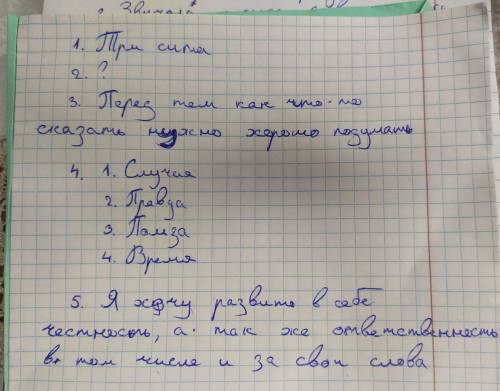 1. Три сита
2. ?
3. Перед тем как что-то
сказать нужно хорошо подумать
4. 1. Случая
2. Правда
3. Помза
4. Время
5. Я хочу развить в себе
честность, а так же ответственность
в том числе и за свои слова